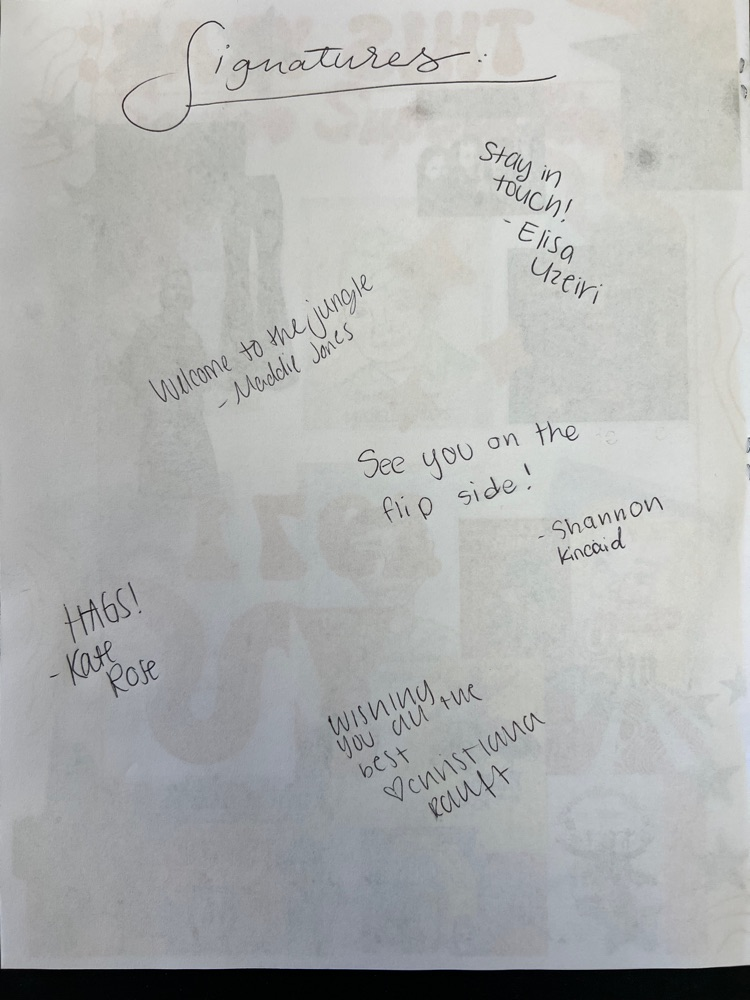 Signatures:
Stay in
touch!
- Elisa
Uzeiri
Welcome to the jungle
- Maddie Jones
See you on the
flip side!
- Shannon
Kincaid
HAGS!
- Kate
Rose
Wishing
you all the
best
♡ Christiana
Rauft